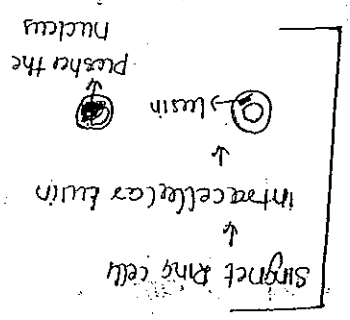 Singnet Ring cells
intracellular Luin
→ Lusin
presher the
nucleus